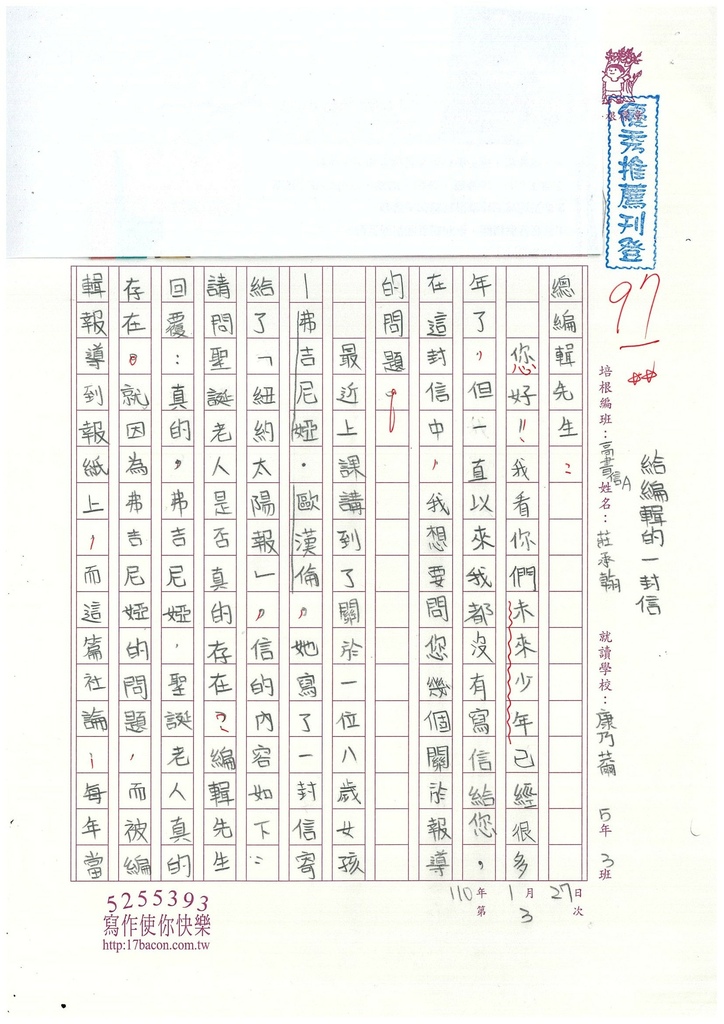 優秀推薦刊登
97
給編輯的一封信
培根編班：高書信A 姓名：莊承翰 就讀學校：康乃薾 5年3班
110年1月27日
第3次
總編輯先生：
您好！我看你們未來少年已經很多
年了，但一直以來我都沒有寫信給您，
在這封信中，我想要問您幾個關於報導
的問題。
最近上課講到了關於一位八歲女孩
—弗吉尼婭·歐漢倫，她寫了一封信寄
給了「紐約太陽報」，信的內容如下：
請問聖誕老人是否真的存在？編輯先生
回覆：真的，弗吉尼婭，聖誕老人真的
存在。就因為弗吉尼婭的問題，而被編
輯報導到報紙上，而這篇社論，每年當
5255393
寫作使你快樂
http:17bacon.com.tw